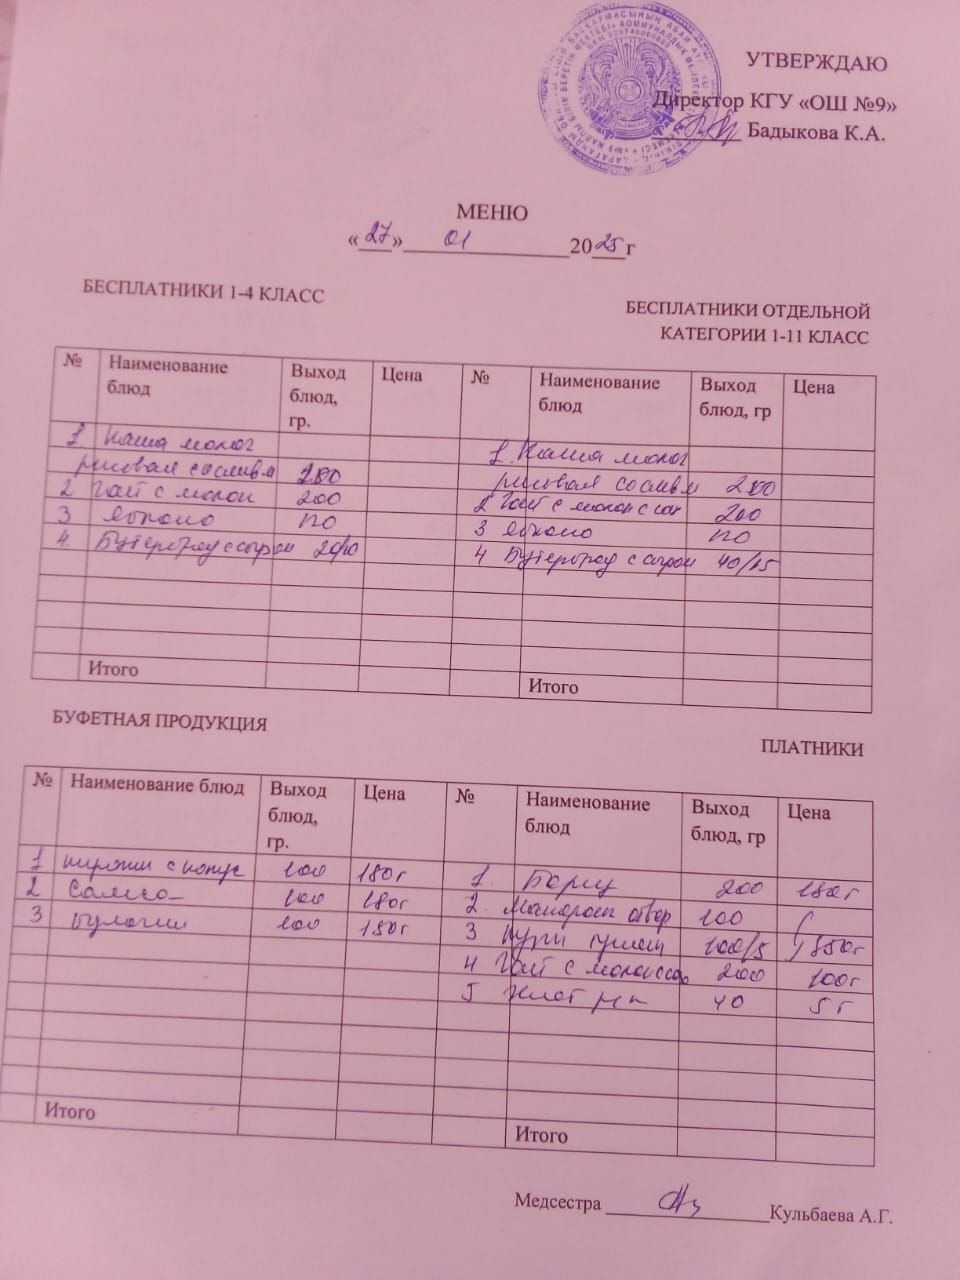 УТВЕРЖДАЮ
Директор КГУ «ОШ №9»
Бадыкова К.А.
МЕНЮ
«27» 01 2025 г
БЕСПЛАТНИКИ 1-4 КЛАСС
БЕСПЛАТНИКИ ОТДЕЛЬНОЙ
КАТЕГОРИИ 1-11 КЛАСС
№ Наименование блюд Выход блюд, гр. Цена № Наименование блюд Выход блюд, гр Цена
1 Каша молоч 1. Каша молоч
рисовая со сливм рисовая со сливм
2 Чай с молок 200 2 Чай с молок с сах 200
3 Яблоко 110 3 Яблоко 110
4. Бутерброд с сыром 20/10 4 Бутерброд с сыром 40/15
Итого Итого
БУФЕТНАЯ ПРОДУКЦИЯ
ПЛАТНИКИ
№ Наименование блюд Выход блюд, гр. Цена № Наименование блюд Выход блюд, гр Цена
1 пирожки с капус 100 180т 1. Борщ 200 180т
2 Самса 100 180т 2. Макарон отвар 100
3 булочки 100 180т 3 100/5 350т
4 Чай с молок сах 200 100т
5 Хлеб 40 5т
Итого Итого
Медсестра Кульбаева А.Г.